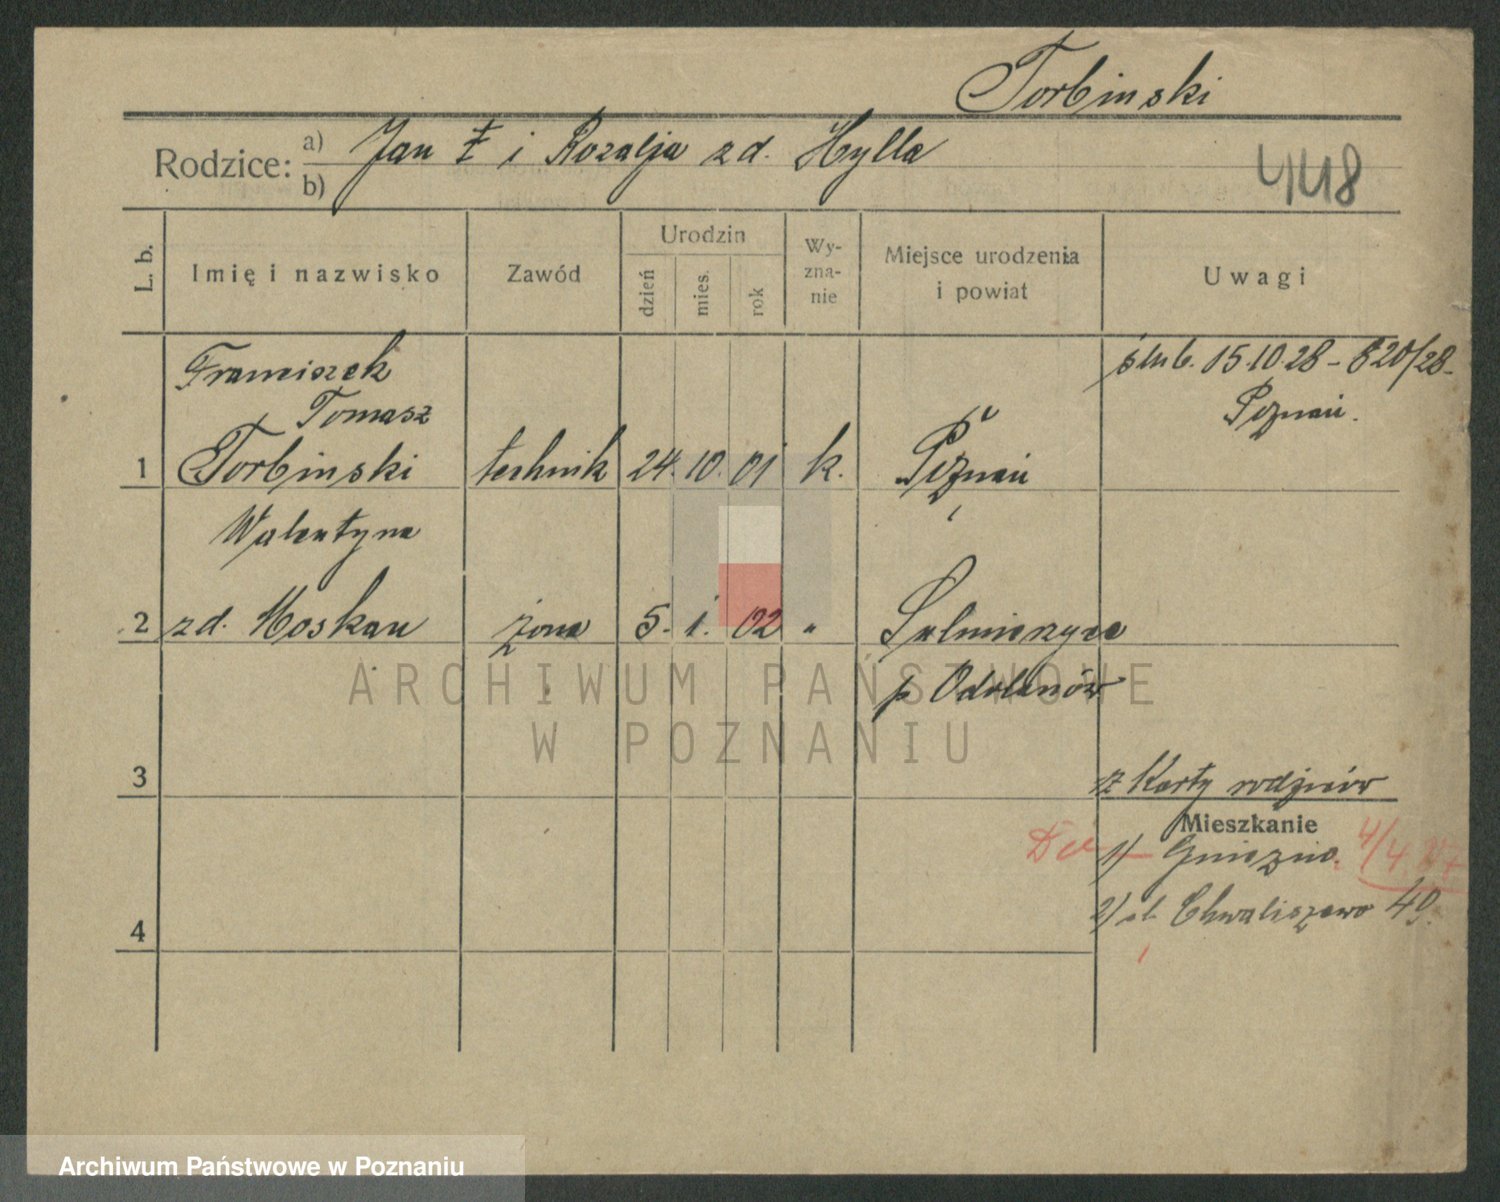 Torbinski
Rodzice: a) Jan Ł i Rozalja zd. Hylla
b)
448
L. b.
Imię i nazwisko
Zawód
Urodzin
dzień
mies.
rok
Wy-
zna-
nie
Miejsce urodzenia
i powiat
Uwagi
Franciszek
Tomasz
1 Torbinski technik 24. 10. 01 k. Poznań
ślub. 15.10.28 - 820/28-
Poznań.
Walentyna
2 zd. Moskau żona 5. 1. 02 "
Sulmierzyce
p. Odolanów
ARCHIWUM PAŃSTWOWE
W POZNANIU
3
z Karty rodziców
Mieszkanie
1) Gniezno. 4/4
2) ul. Chwaliszewo 49.
4
Archiwum Państwowe w Poznaniu